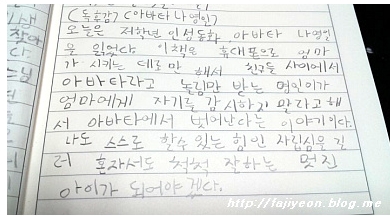 [독후감] <아바타 나영일>
오늘은 저학년 인성동화 아바타 나영일
을 읽었다. 이책은 휴대폰으로 엄마
가 시키는 데로만 해서 친구들 사이에서
아바타라고 놀림만 받는 영일이가
엄마에게 자기를 감시하지 말라고해
서 아바타에서 벗어난다는 이야기이다.
나도 스스로 할수 있는 힘인 자립심을 길
러 혼자서도 척척 잘하는 멋진
아이가 되어야 겠다.
http://lajiyeon.blog.me